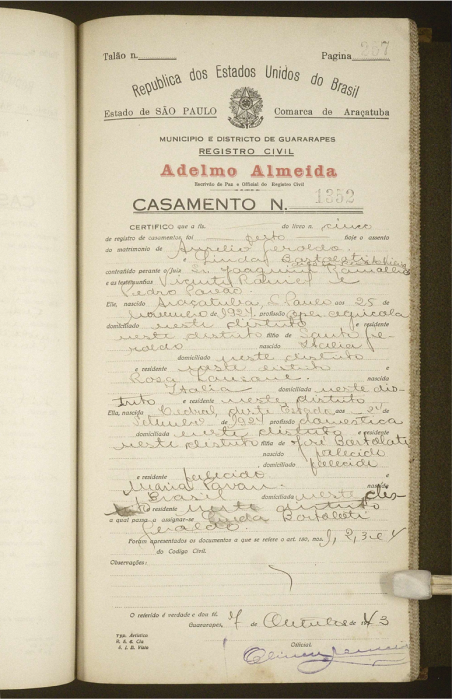 Talão n.
Pagina 267
Republica dos Estados Unidos do Brasil
Estado de SÃO PAULO Comarca de Araçatuba
MUNICIPIO E DISTRICTO DE GUARARAPES
REGISTRO CIVIL
Adelmo Almeida
Escrivão de Paz e Official do Registro Civil
CASAMENTO N. 1352
CERTIFICO que a fls. do livro n. cinco
de registro de casamentos foi feito hoje o assento
do matrimonio de Aurelio Geroldo
e Linda Bortolati
contrahido perante o Juiz Sr. Joaquim Ramalho
e as testemunhas Vicente e
Pedro Pavão
Elle, nascido Araçatuba, S. Paulo aos 25 de
novembro de 1924 profissão agricola
domiciliado neste distrito e residente
neste distrito filho de Santo Ge-
roldo nascido Italia
domiciliado neste distrito
e residente neste distrito e
Rosa nascida
Italia domiciliada neste dis-
trito e residente neste distrito
Ella, nascida Cedral, deste Estado aos 24 de
Setembro de 1924 profissão domestica
domiciliada neste distrito e residente
neste distrito filha de José Bortolati
nascido falecido
domiciliado falecido
e residente falecido e
Maria Pavan nascida
Brasil domiciliada neste dis-
e residente neste distrito
a qual passa a assignar-se Linda Bortolati
Geroldo
Foram apresentados os documentos a que se refere o art. 180, nos. 1, 2, 3 e 4
do Codigo Civil.
Observações:
O referido é verdade e dou fé.
Guararapes, 7 de Outubro de 1943
Official.